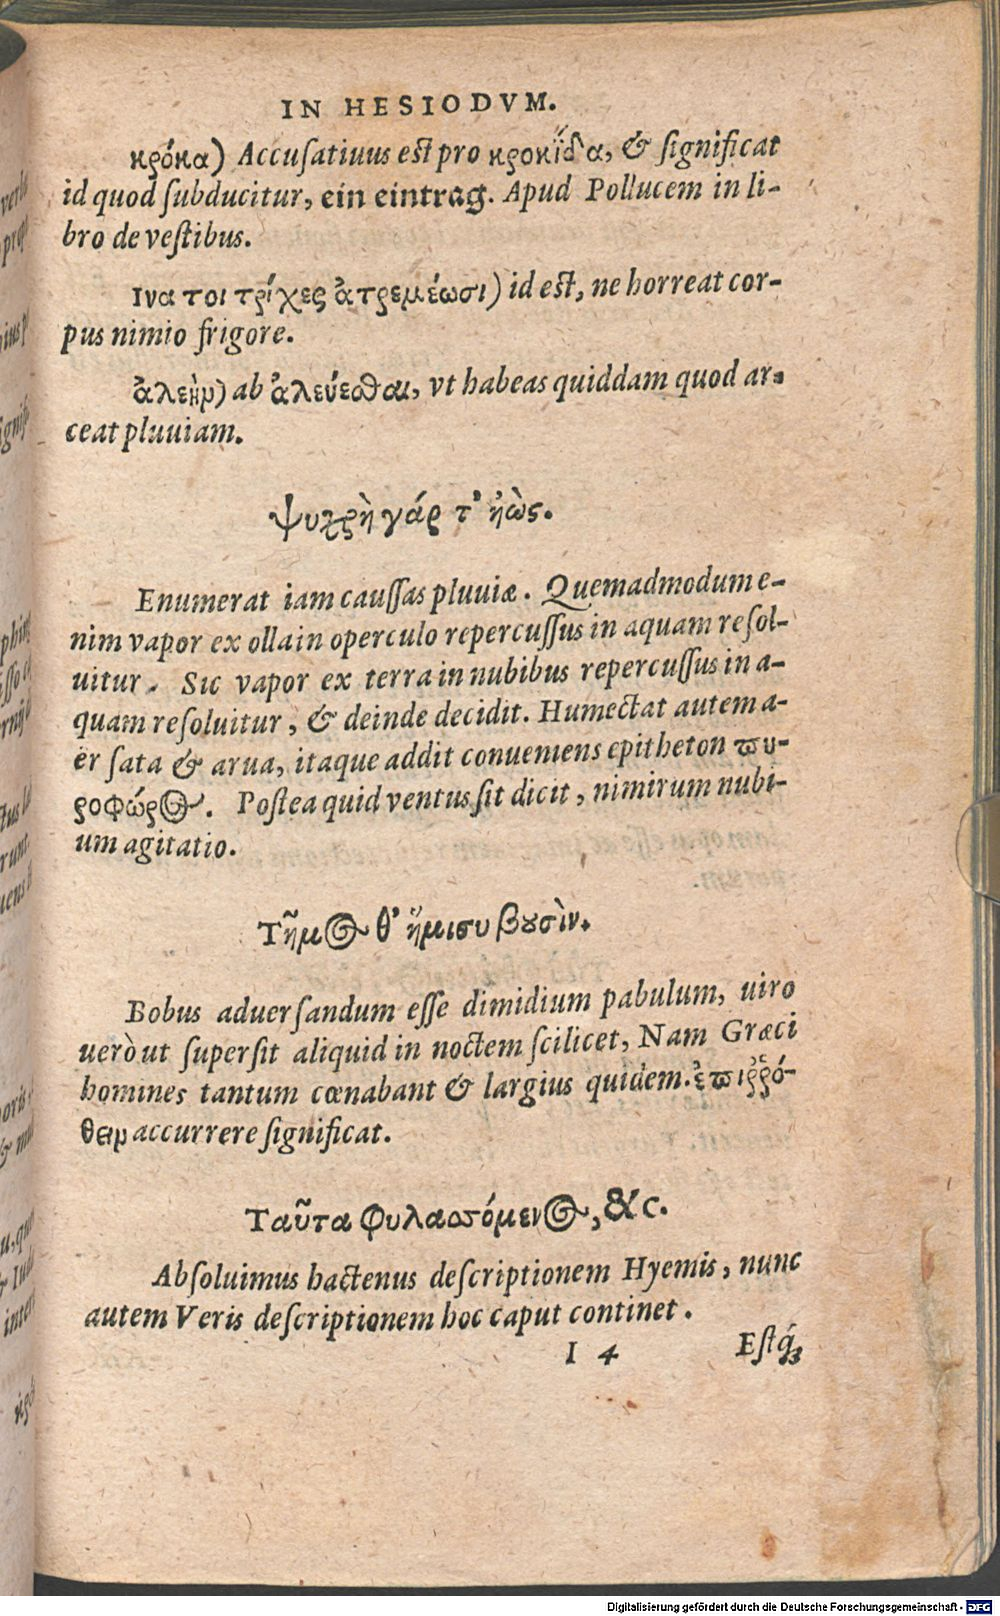 IN HESIODVM.
κρόκα) Accuſatiuus eſt pro κροκίδα, & ſignificat
id quod ſubducitur, ein eintrag. Apud Pollucem in li-
bro de veſtibus.
Ινα τοι τρίχες ἀτρεμέωσι) id eſt, ne horreat cor-
pus nimio frigore.
ἀλεὴν) ab ἀλεύεσθαι, vt habeas quiddam quod ar-
ceat pluuiam.
Ψυχρὴ γάρ τ' ἠὼς.
Enumerat iam cauſſas pluuiæ. Quemadmodum e-
nim vapor ex olla in operculo repercuſſus in aquam reſol-
uitur. Sic vapor ex terra in nubibus repercuſſus in a-
quam reſoluitur, & deinde decidit. Humectat autem a-
ër ſata & arua, itaque addit conueniens epitheton πυ-
ροφώρος. Poſtea quid ventus ſit dicit, nimirum nubi-
um agitatio.
Τῆμος θ' ἥμισυ βουσὶν.
Bobus aduerſandum eſſe dimidium pabulum, uiro
uerò ut ſuperſit aliquid in noctem ſcilicet, Nam Græci
homines tantum cœnabant & largius quidem. ἐπιῤῥό-
θειν accurrere ſignificat.
Ταῦτα φυλασσόμενος, &c.
Abſoluimus hactenus deſcriptionem Hyemis, nunc
autem Veris deſcriptionem hoc caput continet.
I 4 Eſtq́;
Digitalisierung gefördert durch die Deutsche Forschungsgemeinschaft - DFG